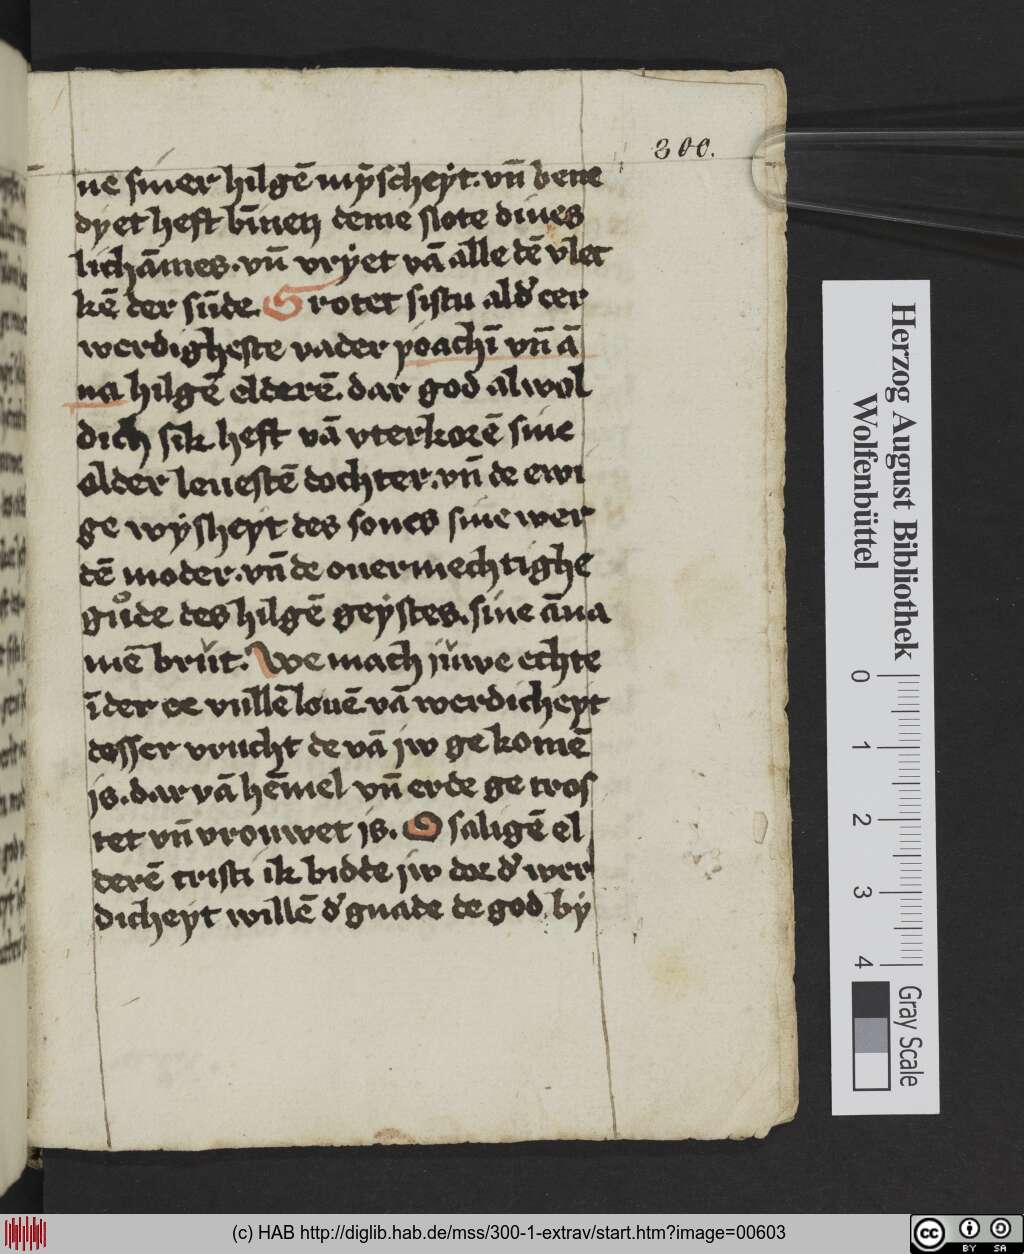 300.
ne siner hilgē mȳscheẏt. vn̄ bene
dyet heft bīnen deme slote dines
lichāmes. vn̄ vrẏet vā alle dē vlec
kē der sūde. Grotet sistu ald' eer
werdigheste vader ioachī vn̄ ā
na hilgē elderē. dar god alwol
dich sik heft vā vterkorē sine
alder leuestē dochter. vn̄ de ewi
ge wẏsheẏt des sones sine wer
dē moder. vn̄ de ouermechtighe
gůde des hilgē geẏstes. sine āna
mē brůt. We mach jůwe echte
ī der ee vullē louē. vā werdicheyt
desser vrucht de vā jw ge komē
is. dar vā hēmel vn̄ erde ge tros
tet vn̄ vrouwet js. O saligē el
derē cristi ik bidde jw dor d' wer
dicheyt willē d' gnade de god bẏ
Herzog August Bibliothek
Wolfenbüttel
0 1 2 3 4
Gray Scale
(c) HAB http://diglib.hab.de/mss/300-1-extrav/start.htm?image=00603
cc BY SA